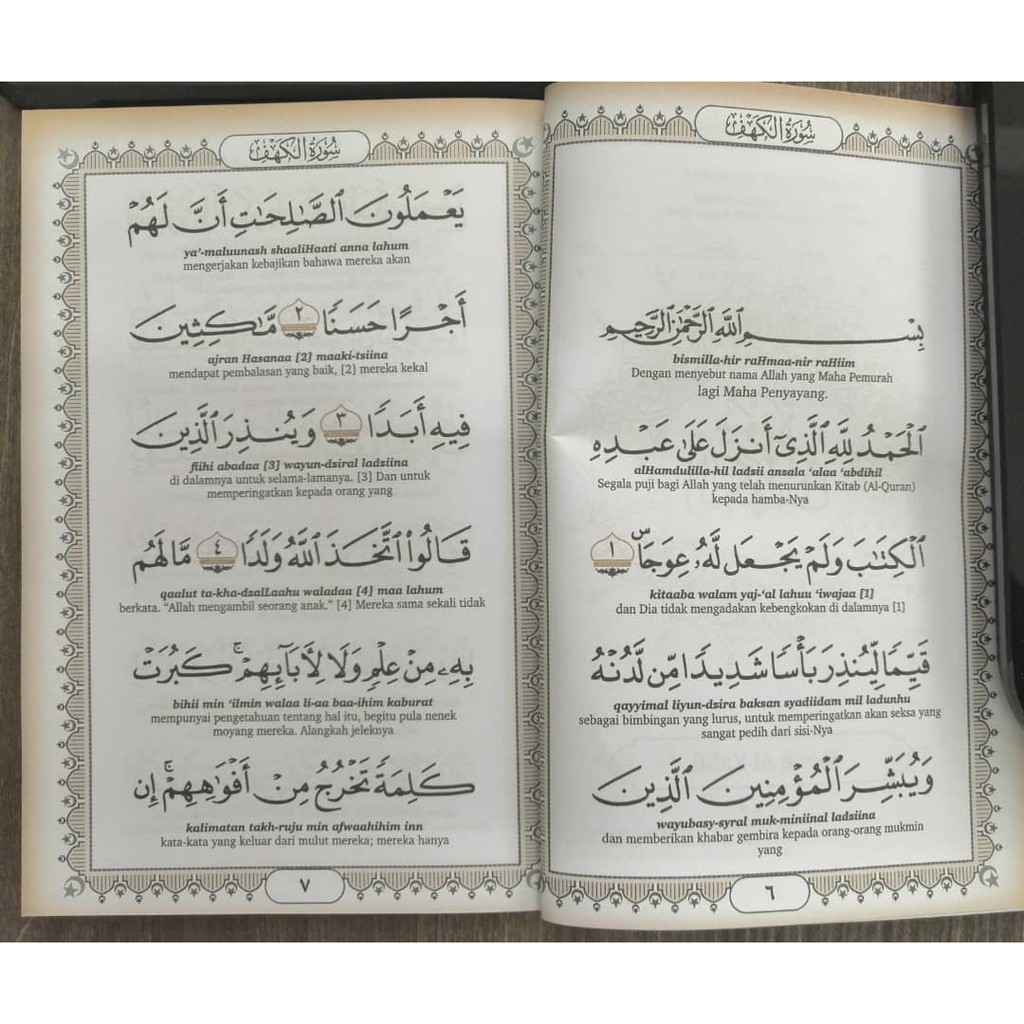 سُورَةُ الكَهْفِ
بِسْمِ ٱللَّهِ ٱلرَّحْمَٰنِ ٱلرَّحِيمِ
bismilla-hir raHmaa-nir raHiim
Dengan menyebut nama Allah yang Maha Pemurah
lagi Maha Penyayang.
ٱلْحَمْدُ لِلَّهِ ٱلَّذِىٓ أَنزَلَ عَلَىٰ عَبْدِهِ
alHamdulilla-hil ladsii ansala ‘alaa ‘abdihil
Segala puji bagi Allah yang telah menurunkan Kitab (Al-Quran)
kepada hamba-Nya
ٱلْكِتَٰبَ وَلَمْ يَجْعَل لَّهُۥ عِوَجَاۜ ١
kitaaba walam yaj-‘al lahuu ‘iwajaa [1]
dan Dia tidak mengadakan kebengkokan di dalamnya [1]
قَيِّمًا لِّيُنذِرَ بَأْسًا شَدِيدًا مِّن لَّدُنْهُ
qayyimal liyun-dsira baksan syadiidam mil ladunhu
sebagai bimbingan yang lurus, untuk memperingatkan akan seksa yang
sangat pedih dari sisi-Nya
وَيُبَشِّرَ ٱلْمُؤْمِنِينَ ٱلَّذِينَ
wayubasy-syral muk-miniinal ladsiina
dan memberikan khabar gembira kepada orang-orang mukmin
yang
٦
سُورَةُ الكَهْفِ
يَعْمَلُونَ ٱلصَّٰلِحَٰتِ أَنَّ لَهُمْ
ya’-maluunash shaaliHaati anna lahum
mengerjakan kebajikan bahawa mereka akan
أَجْرًا حَسَنًا ٢ مَّٰكِثِينَ
ajran Hasanaa [2] maaki-tsiina
mendapat pembalasan yang baik, [2] mereka kekal
فِيهِ أَبَدًا ٣ وَيُنذِرَ ٱلَّذِينَ
fiihi abadaa [3] wayun-dsiral ladsiina
di dalamnya untuk selama-lamanya. [3] Dan untuk
memperingatkan kepada orang yang
قَالُوا۟ ٱتَّخَذَ ٱللَّهُ وَلَدًا ٤ مَّا لَهُم
qaalut ta-kha-dsalLaahu waladaa [4] maa lahum
berkata. “Allah mengambil seorang anak.” [4] Mereka sama sekali tidak
بِهِۦ مِنْ عِلْمٍ وَلَا لِأٓبَآئِهِمْ ۚ كَبُرَتْ
bihii min ‘ilmin walaa li-aa baa-ihim kaburat
mempunyai pengetahuan tentang hal itu, begitu pula nenek
moyang mereka. Alangkah jeleknya
كَلِمَةً تَخْرُجُ مِنْ أَفْوَٰهِهِمْ ۚ إِن
kalimatan takh-ruju min afwaahihim inn
kata-kata yang keluar dari mulut mereka; mereka hanya
٧